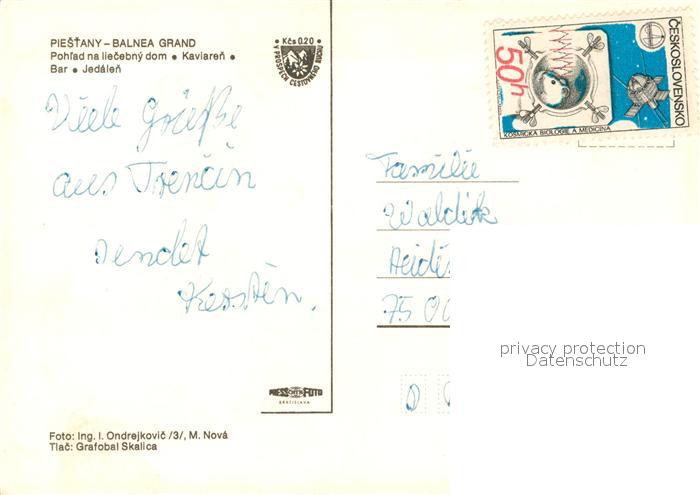 PIEŠŤANY – BALNEA GRAND
Pohľad na liečebný dom • Kaviareň •
Bar • Jedáleň
Kčs 0.20
V PROSPECH CESTOVNÉHO RUCHU
ČESKOSLOVENSKO
50h
KOSMICKÁ BIOLOGIE A MEDICÍNA
Viele Grüße
aus Trenčin
sendet
Kerstin.
Familie
Waldik
75 00
D
privacy protection
Datenschutz
PRESSFOTO
BRATISLAVA
Foto: Ing. I. Ondrejkovič /3/, M. Nová
Tlač: Grafobal Skalica